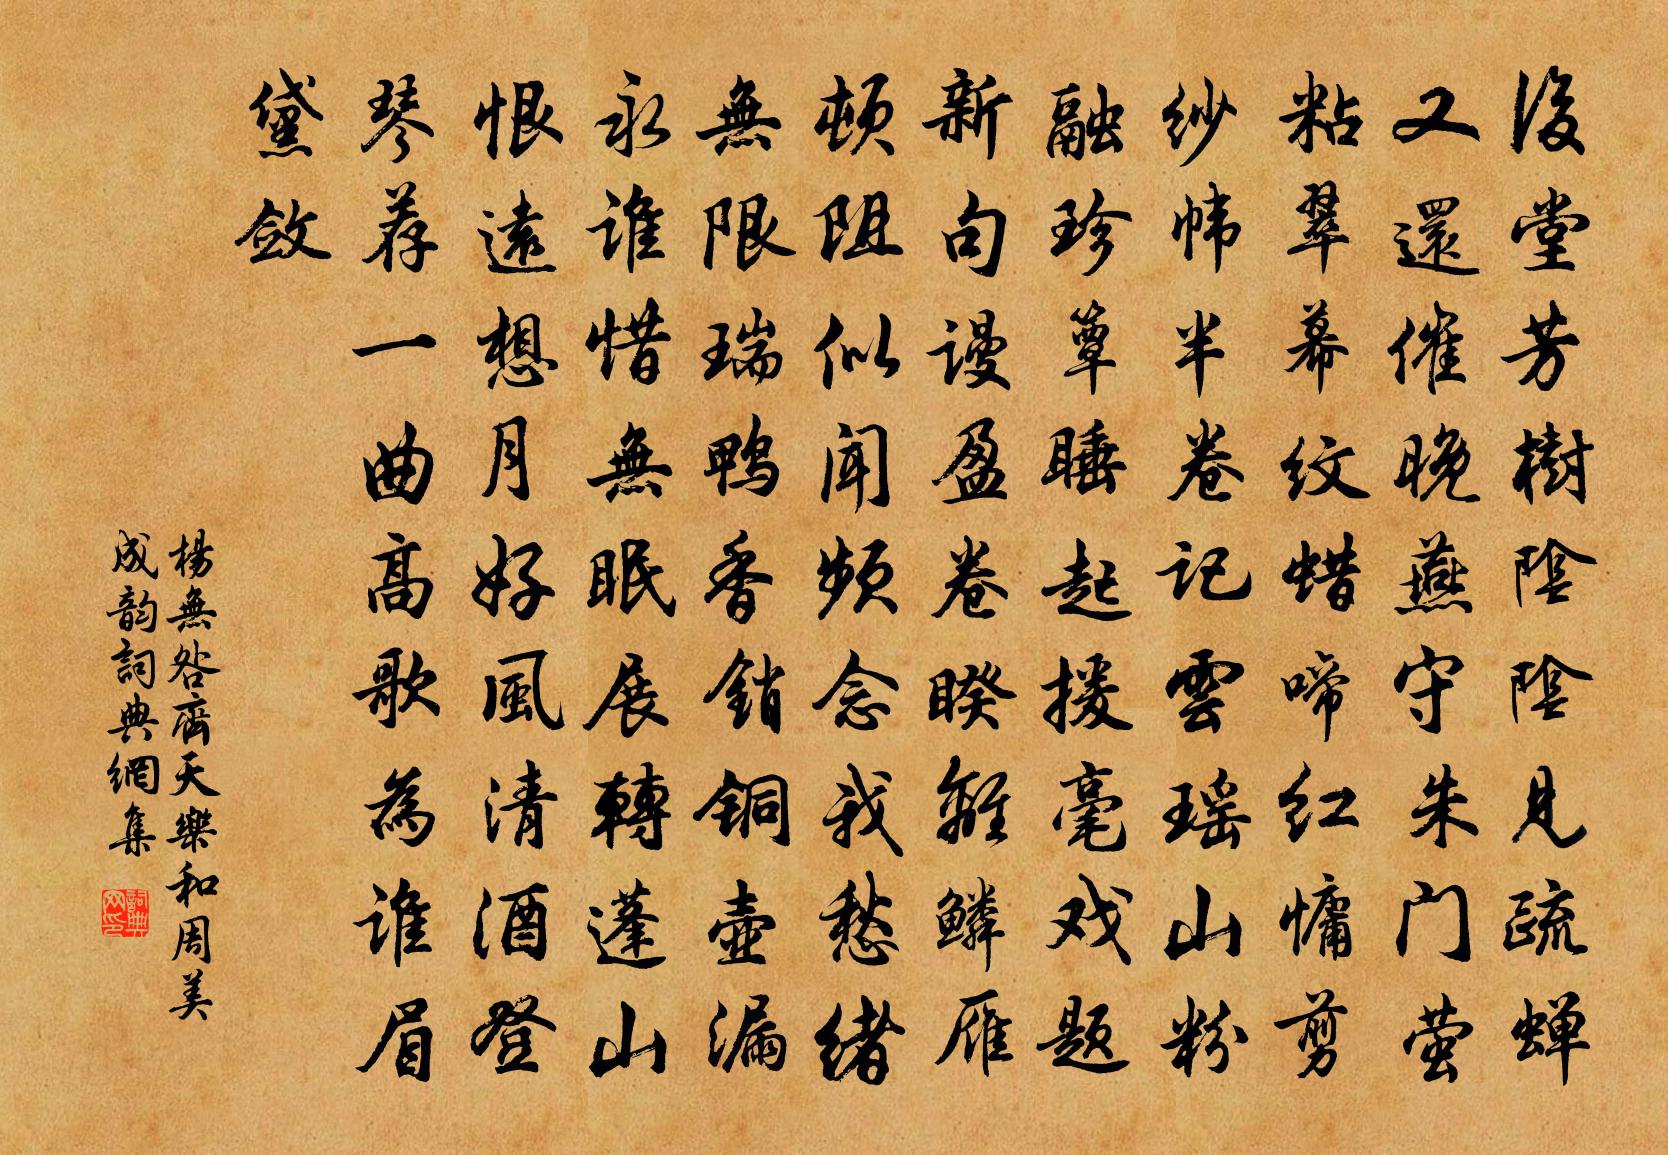 後堂芳樹陰陰見疏蝉
又還催晚燕守朱門萤
粘翠幕紋蜡啼红慵剪
紗帏半卷记雲瑶山粉
融珍簟睡起援毫戏题
新句謾盈卷睽離鳞雁
頓阻似闻频念我愁绪
無限瑞鸭香銷铜壶漏
永谁惜無眠展轉蓬山
恨遠想月好風清酒登
琴荐一曲高歌為谁眉
黛敛
楊無咎齊天樂和周美
成韵詞典網集
詞典网印